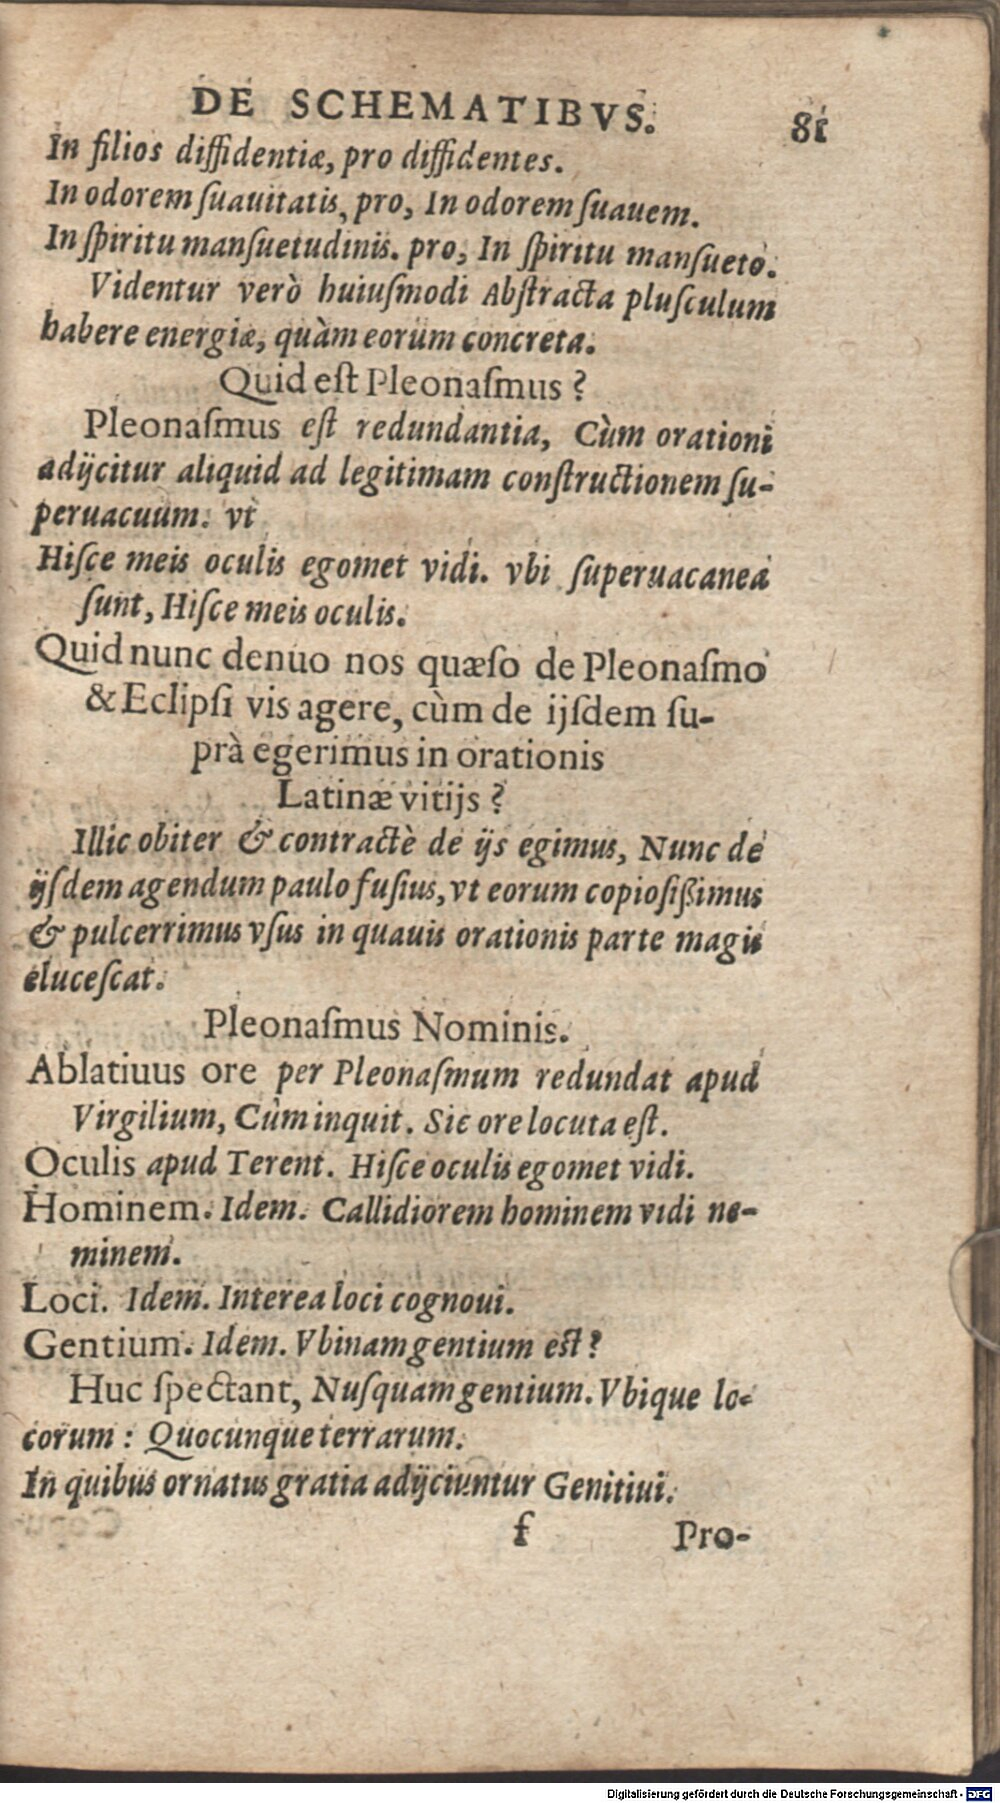 DE SCHEMATIBVS. 81
In filios diffidentiæ, pro diffidentes.
In odorem ſuauitatis, pro, In odorem ſuauem.
In ſpiritu manſuetudinis. pro, In ſpiritu manſueto.
Videntur verò huiuſmodi Abſtracta pluſculum
habere energiæ, quàm eorum concreta.
Quid eſt Pleonaſmus?
Pleonaſmus eſt redundantia, Cùm orationi
adijcitur aliquid ad legitimam conſtructionem ſu-
peruacuum. vt
Hiſce meis oculis egomet vidi. vbi ſuperuacanea
ſunt, Hiſce meis oculis.
Quid nunc denuo nos quæſo de Pleonaſmo
& Eclipſi vis agere, cùm de ijſdem ſu-
prà egerimus in orationis
Latinæ vitijs?
Illic obiter & contractè de ijs egimus, Nunc de
ijſdem agendum paulo fuſius, vt eorum copioſißimus
& pulcerrimus vſus in quauis orationis parte magis
eluceſcat.
Pleonaſmus Nominis.
Ablatiuus ore per Pleonaſmum redundat apud
Virgilium, Cùm inquit. Sic ore locuta eſt.
Oculis apud Terent. Hiſce oculis egomet vidi.
Hominem. Idem. Callidiorem hominem vidi ne-
minem.
Loci. Idem. Interea loci cognoui.
Gentium. Idem. Vbinam gentium eſt?
Huc ſpectant, Nuſquam gentium. Vbique lo-
corum: Quocunque terrarum.
In quibus ornatus gratia adijciuntur Genitiui.
f Pro-
Digitalisierung gefördert durch die Deutsche Forschungsgemeinschaft - DFG